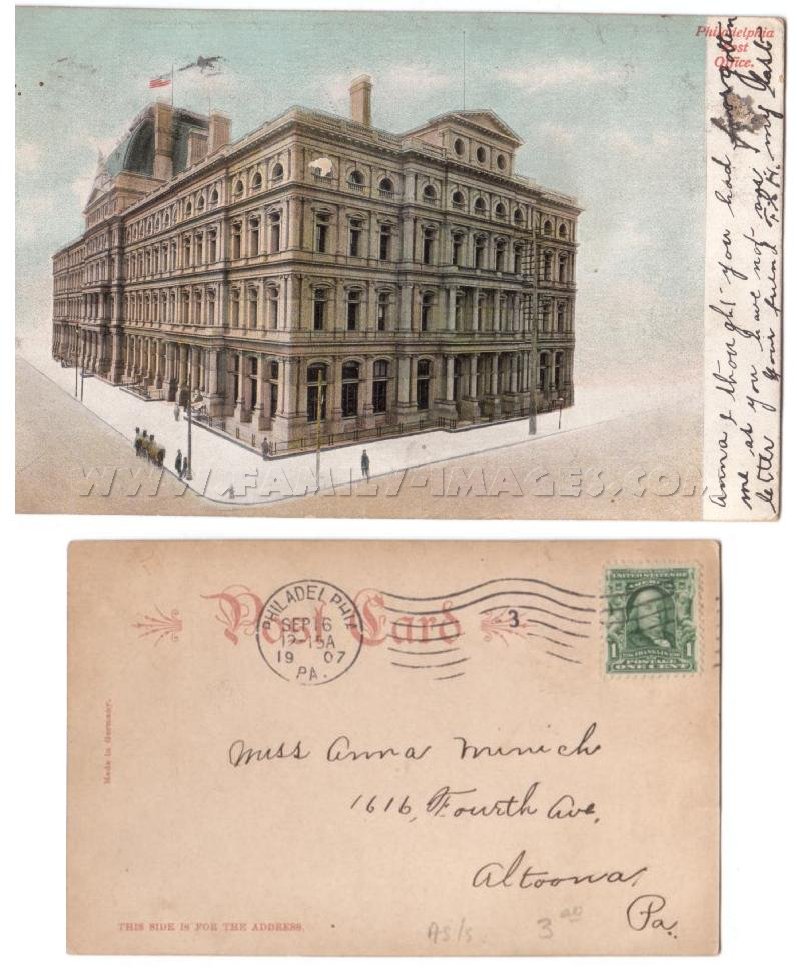 Philadelphia
Post
Office.
Anna I thought you had forgotten
me as you have not ans my last
letter your friend
WWW.FAMILY-IMAGES.COM
Post Card
PHILADELPHIA
SEP 16
12-15A
1907
PA.
3
UNITED STATES OF
AMERICA
1 1
POSTAGE
ONE CENT
Made in Germany.
Miss Anna Minich
1616, Fourth Ave,
Altoona,
Pa.
THIS SIDE IS FOR THE ADDRESS.
AS/s
3 00